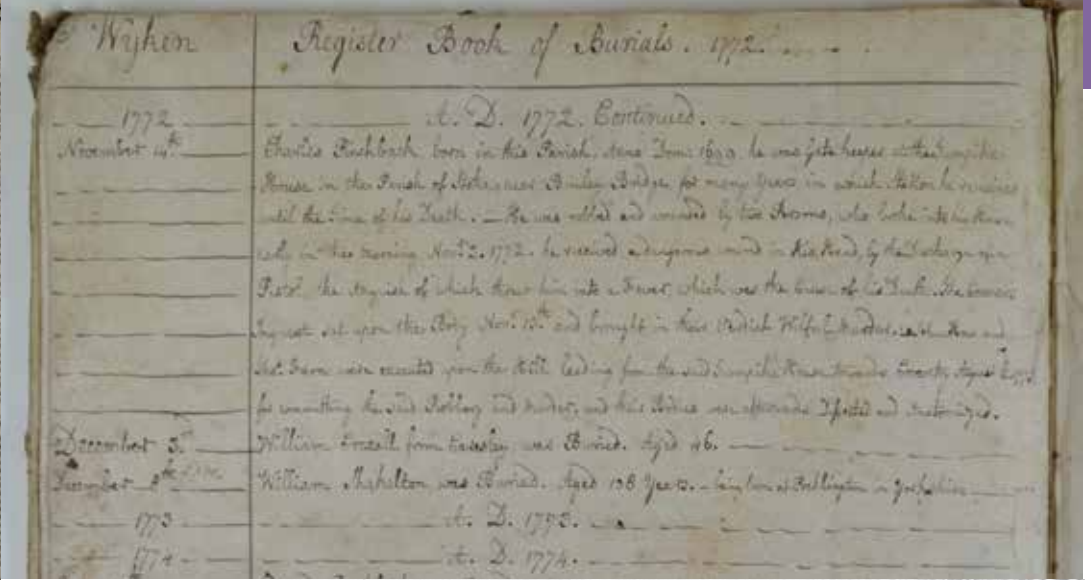 Wyken Register Book of Burials. 1772.
1772 A. D. 1772. Continued.
November 14th Charles Pinchback born in this Parish, Anno Dom: he was Gate keeper at the Turnpike
House in the Parish of Stoke near Binley Bridge for many Years in which Station he remained
until the time of his Death. He was robbed and wounded by two Persons, who broke into his House
early in the morning Novr. 2. 1772. he received a dangerous wound in his Head, by the Discharge of a
Pistol, the Anguish of which threw him into a Fever, which was the Cause of his Death. The Coroners
Inquest sat upon the Body Novr. 13th and brought in their Verdict Wilful Murder. and
were executed upon the Hill leading from the said Turnpike House towards Coventry
for committing the said Robbery and Murder, and their Bodies were afterwards Dissected and Anatomized.
December 3rd William from was Buried. Aged 46.
December 8th William Shakelton was Buried. Aged 138 Years. being born at Bridlington in Yorkshire
1773 A. D. 1773.
1774 A. D. 1774.